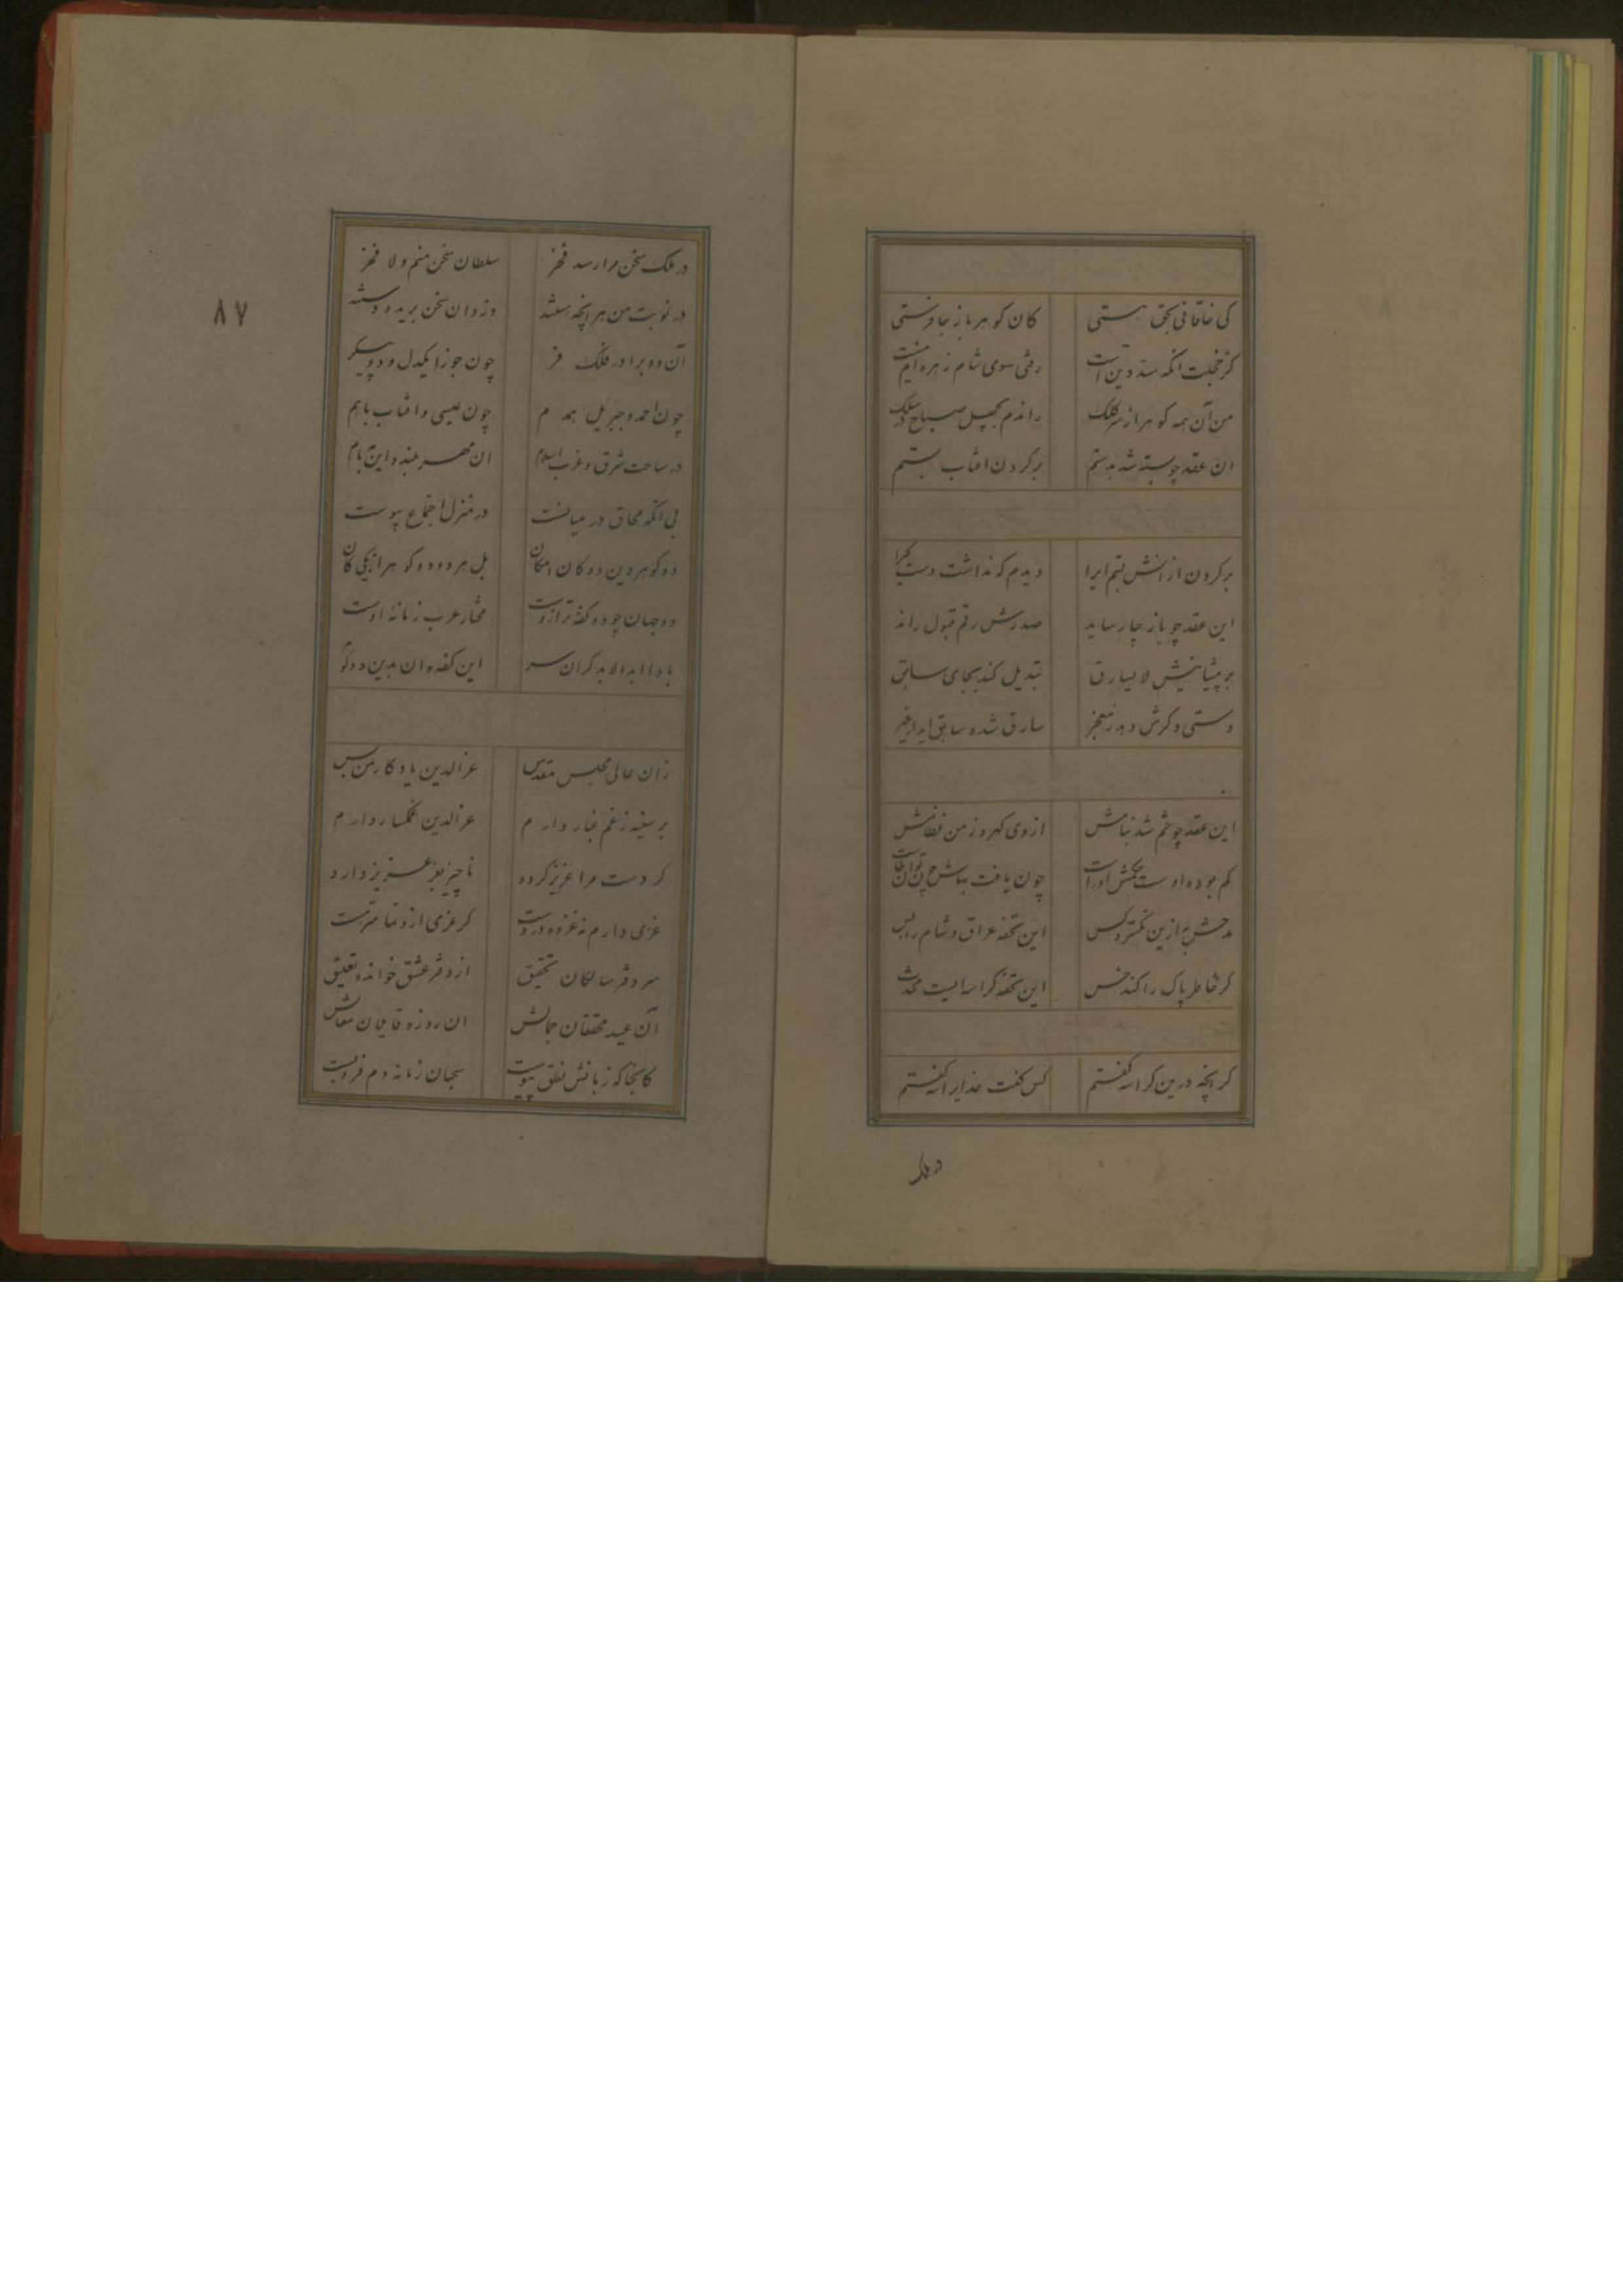 کی خاقانی بحق هستی کان کوهر باز جا فرستی
کز خجلت انکه سد دین است رفتی سوی شام زهره اینست
من آن همه کوهر از سر کلک راندم بچهل صباح در سلک
ان عقد چو بسته شد بدستم بر کردن افتاب بستم
بر کردن از انش بستم ایرا دیدم که نداشت دست کیرا
این عقد چو باز جا رساید صدرش رقم قبول راند
بر پیشانیش لا یسارق تبدیل کند بجای سابق
دستی دکرش دهد ز معجز سارق شده سابق اید از عجز
این عقد چو ختم شد بنامش از وی کهر و ز من نظامش
کم بوده اوست حکمش اوراست چون یافت بهاش چون توان خواست
مدحش به ازین نکسترد کس این تحفه عراق و شام را بس
کر خاطر پاک را کند خس این تحفه کراسه ایست محدث
کر انچه درین کراسه کفتم کس کفت خدایرا نکفتم
در ملک
در ملک سخن مرا رسد فخر سلطان سخن منم و لا فخر
در نوبت من هر انچه هستند دزدان سخن بریده دستند
آن دو برادر فلک فر چون جوزا یکدل و دو پیکر
چون احمد و جبریل همدم چون عیسی و افتاب باهم
در ساحت شرق و غرب اسلام ان مهر بلند و این مه بام
بی انکه محاق در میانست در منزل اجتماع پیوست
دو کوهر دین دو کان امکان بل هر دو دو کوهر از یکی کان
دو جهان چو دو کفه ترازوست مختار عرب زبانه اوست
بادا ابد الابد کران سر این کفه و ان بدین دو کوهر
زان عالی مجلس مقدس عزالدین یادکار من بس
بر سینه ز غم غبار دارم عزالدین غمکسار دارم
کردست مرا عزیز کرده ناچیز عزیز دارد
عزی دارم نه غزه در دست کر عزی ازو تنها مترست
سر دفتر سالکان تحقیق از دفتر عشق خوانده تعلیق
آن عید محققان جمالش ان روزه قایلان مقالش
کانجا که زبانش نطق پیوست سحبان زمانه دم فروبست
۸۷